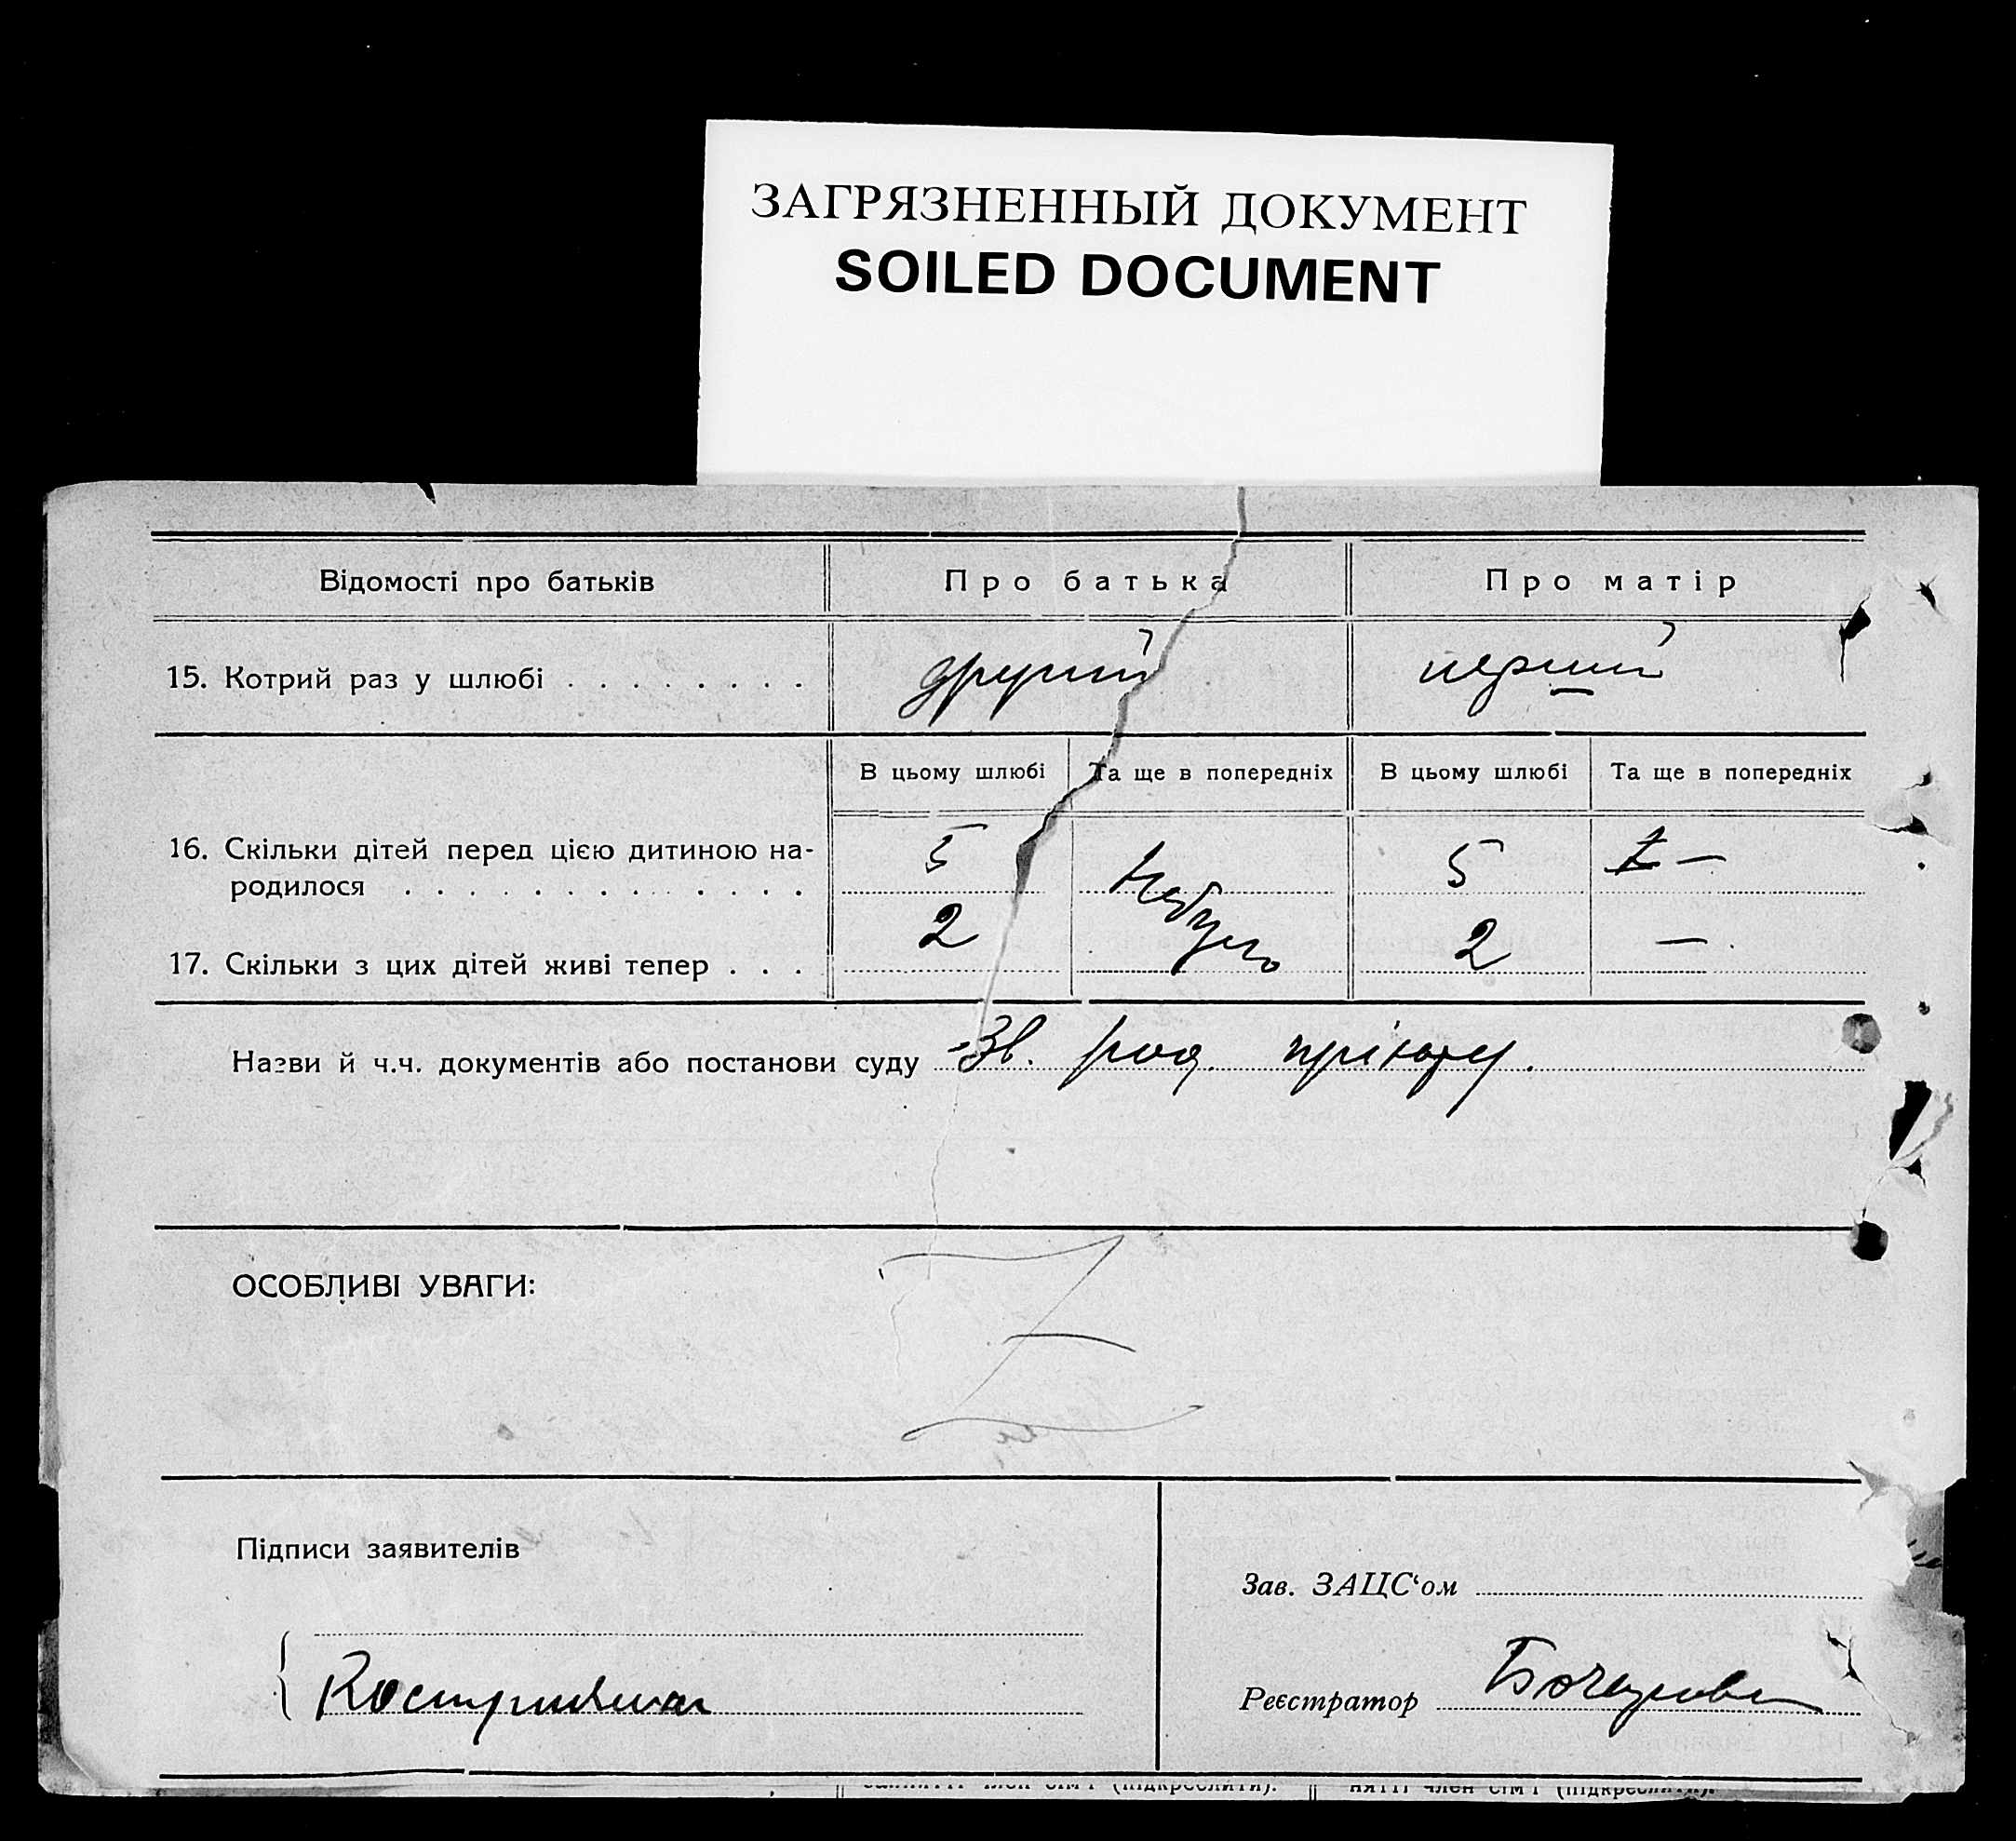 ЗАГРЯЗНЕННЫЙ ДОКУМЕНТ
SOILED DOCUMENT
Відомості про батьків Про батька Про матір
15. Котрий раз у шлюбі . . . . . . . . другий перший
В цьому шлюбі Та ще в попередніх В цьому шлюбі Та ще в попередніх
16. Скільки дітей перед цією дитиною на-
родилося . . . . . . . . . . . . . 5 5 —
17. Скільки з цих дітей живі тепер . . . 2 2 —
Назви й ч.ч. документів або постанови суду Зв. род. пріюту.
ОСОБЛИВІ УВАГИ:
Z
Підписи заявителів
Зав. ЗАЦС‘ом
Реєстратор
член сім'ї (підкреслити). нятті член сім'ї (підкреслити).